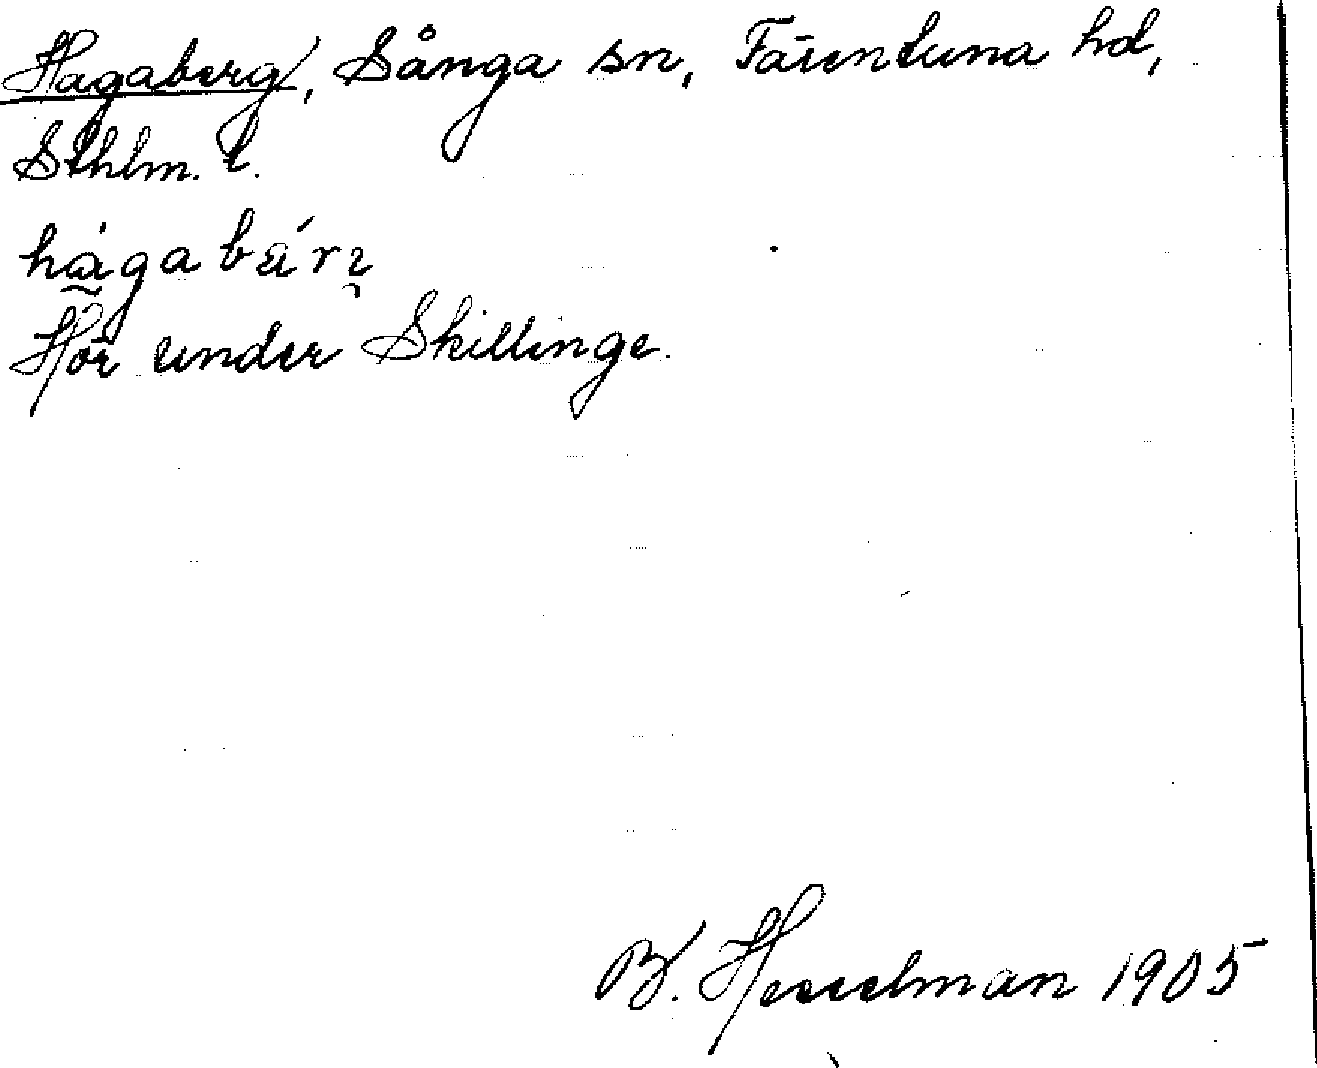 Hagaberg, Sånga sn, Färentuna hd,
Sthlm. l.
hágabárı
Hör under Skillinge.
B. Hesselman 1905